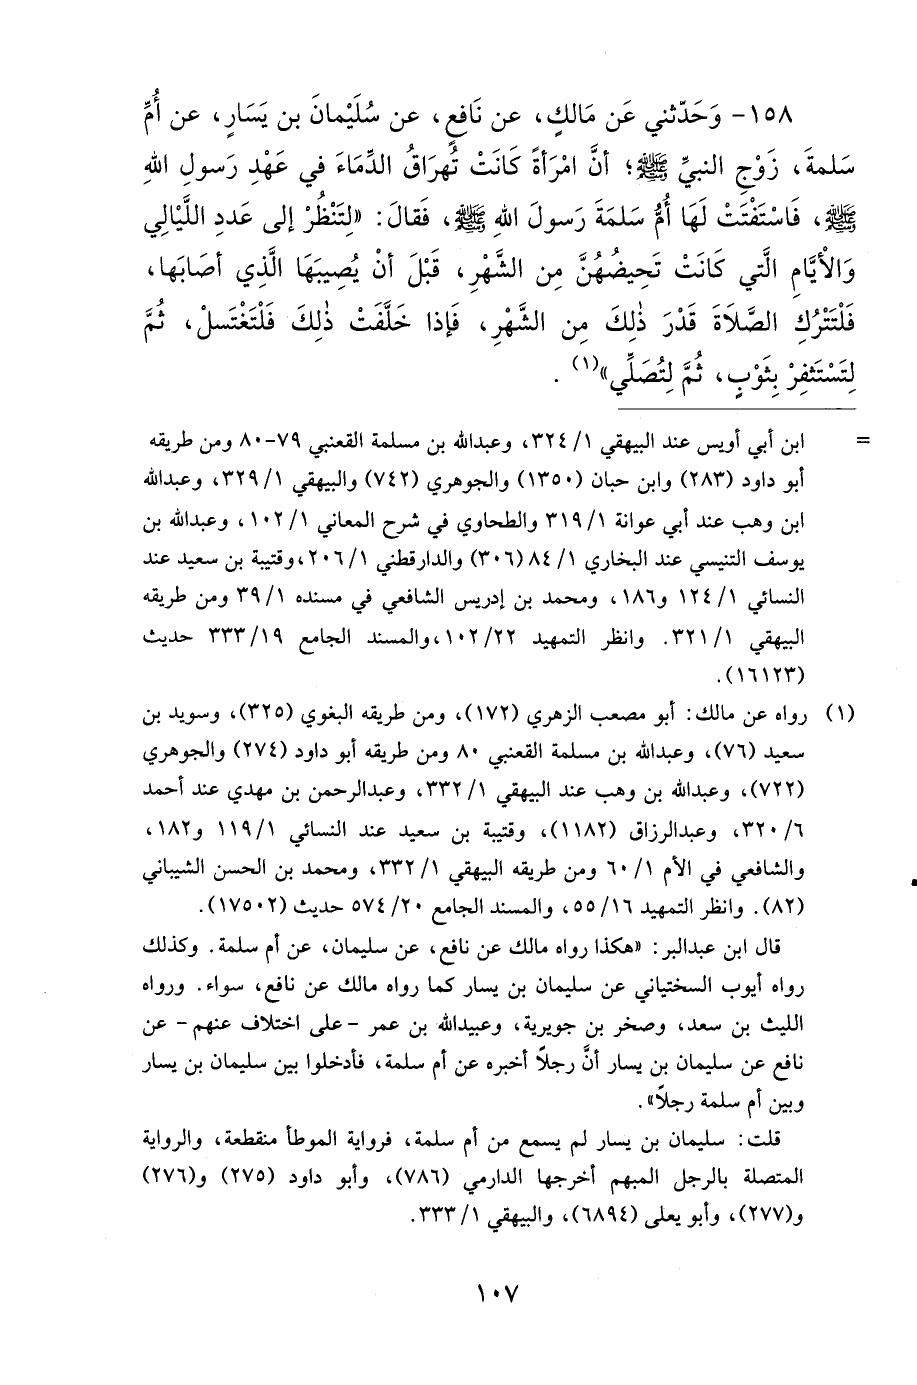 ١٥٨- وَحَدّثني عَن مَالكٍ، عن نَافعٍ، عن سُلَيْمانَ بن يَسَارٍ، عن أُمِّ
سَلمةَ، زَوْجِ النبيِّ ﷺ؛ أنَّ امْرَأةً كَانَتْ تُهرَاقُ الدِّمَاءَ في عَهْدِ رَسولِ اللهِ
ﷺ، فَاسْتَفْتَتْ لَهَا أُمُّ سَلمَةَ رَسولَ اللهِ ﷺ، فَقالَ: «لِتَنْظُرْ إلى عَددِ اللَّيالي
وَالْأيَّامِ الَّتي كَانَتْ تَحِيضُهُنَّ مِن الشَّهْرِ، قَبْلَ أنْ يُصِيبَهَا الَّذي أصَابَها،
فَلْتَتْرُكِ الصَّلَاةَ قَدْرَ ذٰلِكَ مِن الشَّهْرِ، فَإذا خَلَّفَتْ ذٰلِكَ فَلْتَغْتَسلْ، ثُمَّ
لِتَسْتَثفِرْ بِثَوْبٍ، ثُمَّ لِتُصَلِّي»(١) .
= ابن أبي أويس عند البيهقي ١/ ٣٢٤، وعبدالله بن مسلمة القعنبي ٧٩-٨٠ ومن طريقه
أبو داود (٢٨٣) وابن حبان (١٣٥٠) والجوهري (٧٤٢) والبيهقي ١/ ٣٢٩، وعبدالله
ابن وهب عند أبي عوانة ١/ ٣١٩ والطحاوي في شرح المعاني ١/ ١٠٢، وعبدالله بن
يوسف التنيسي عند البخاري ١/ ٨٤ (٣٠٦) والدارقطني ١/ ٢٠٦،وقتيبة بن سعيد عند
النسائي ١/ ١٢٤ و١٨٦، ومحمد بن إدريس الشافعي في مسنده ١/ ٣٩ ومن طريقه
البيهقي ١/ ٣٢١. وانظر التمهيد ٢٢/ ١٠٢،والمسند الجامع ١٩/ ٣٣٣ حديث
(١٦١٢٣).
(١) رواه عن مالك: أبو مصعب الزهري (١٧٢)، ومن طريقه البغوي (٣٢٥)، وسويد بن
سعيد (٧٦)، وعبدالله بن مسلمة القعنبي ٨٠ ومن طريقه أبو داود (٢٧٤) والجوهري
(٧٢٢)، وعبدالله بن وهب عند البيهقي ١/ ٣٣٢، وعبدالرحمن بن مهدي عند أحمد
٦/ ٣٢٠، وعبدالرزاق (١١٨٢)، وقتيبة بن سعيد عند النسائي ١/ ١١٩ و١٨٢،
والشافعي في الأم ١/ ٦٠ ومن طريقه البيهقي ١/ ٣٣٢، ومحمد بن الحسن الشيباني
(٨٢). وانظر التمهيد ١٦/ ٥٥، والمسند الجامع ٢٠/ ٥٧٤ حديث (١٧٥٠٢).
قال ابن عبدالبر: «هكذا رواه مالك عن نافع، عن سليمان، عن أم سلمة. وكذلك
رواه أيوب السختياني عن سليمان بن يسار كما رواه مالك عن نافع، سواء. ورواه
الليث بن سعد، وصخر بن جويرية، وعبيدالله بن عمر -على اختلاف عنهم- عن
نافع عن سليمان بن يسار أنَّ رجلاً أخبره عن أم سلمة، فأدخلوا بين سليمان بن يسار
وبين أم سلمة رجلاً».
قلت: سليمان بن يسار لم يسمع من أم سلمة، فرواية الموطأ منقطعة، والرواية
المتصلة بالرجل المبهم أخرجها الدارمي (٧٨٦)، وأبو داود (٢٧٥) و(٢٧٦)
و(٢٧٧)، وأبو يعلى (٦٨٩٤)، والبيهقي ١/ ٣٣٣.
١٠٧